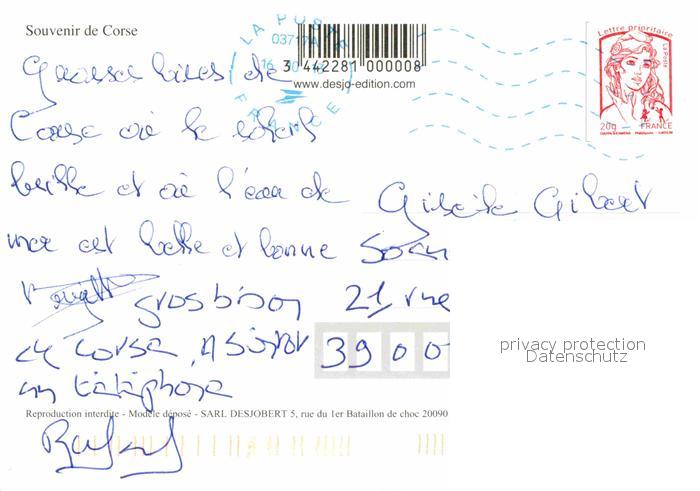 Souvenir de Corse
LA POSTE
03717A
FRANCE
3 442281 000008
www.desjo-edition.com
Lettre prioritaire
La Poste
20g FRANCE
Grosses bises de
Corse où le soleil
brille et où l'eau de
mer est belle et bonne
Gisèle Gibert
grosbison 21 rue
3900
un téléphone
privacy protection
Datenschutz
Reproduction interdite - Modèle déposé - SARL DESJOBERT 5, rue du 1er Bataillon de choc 20090